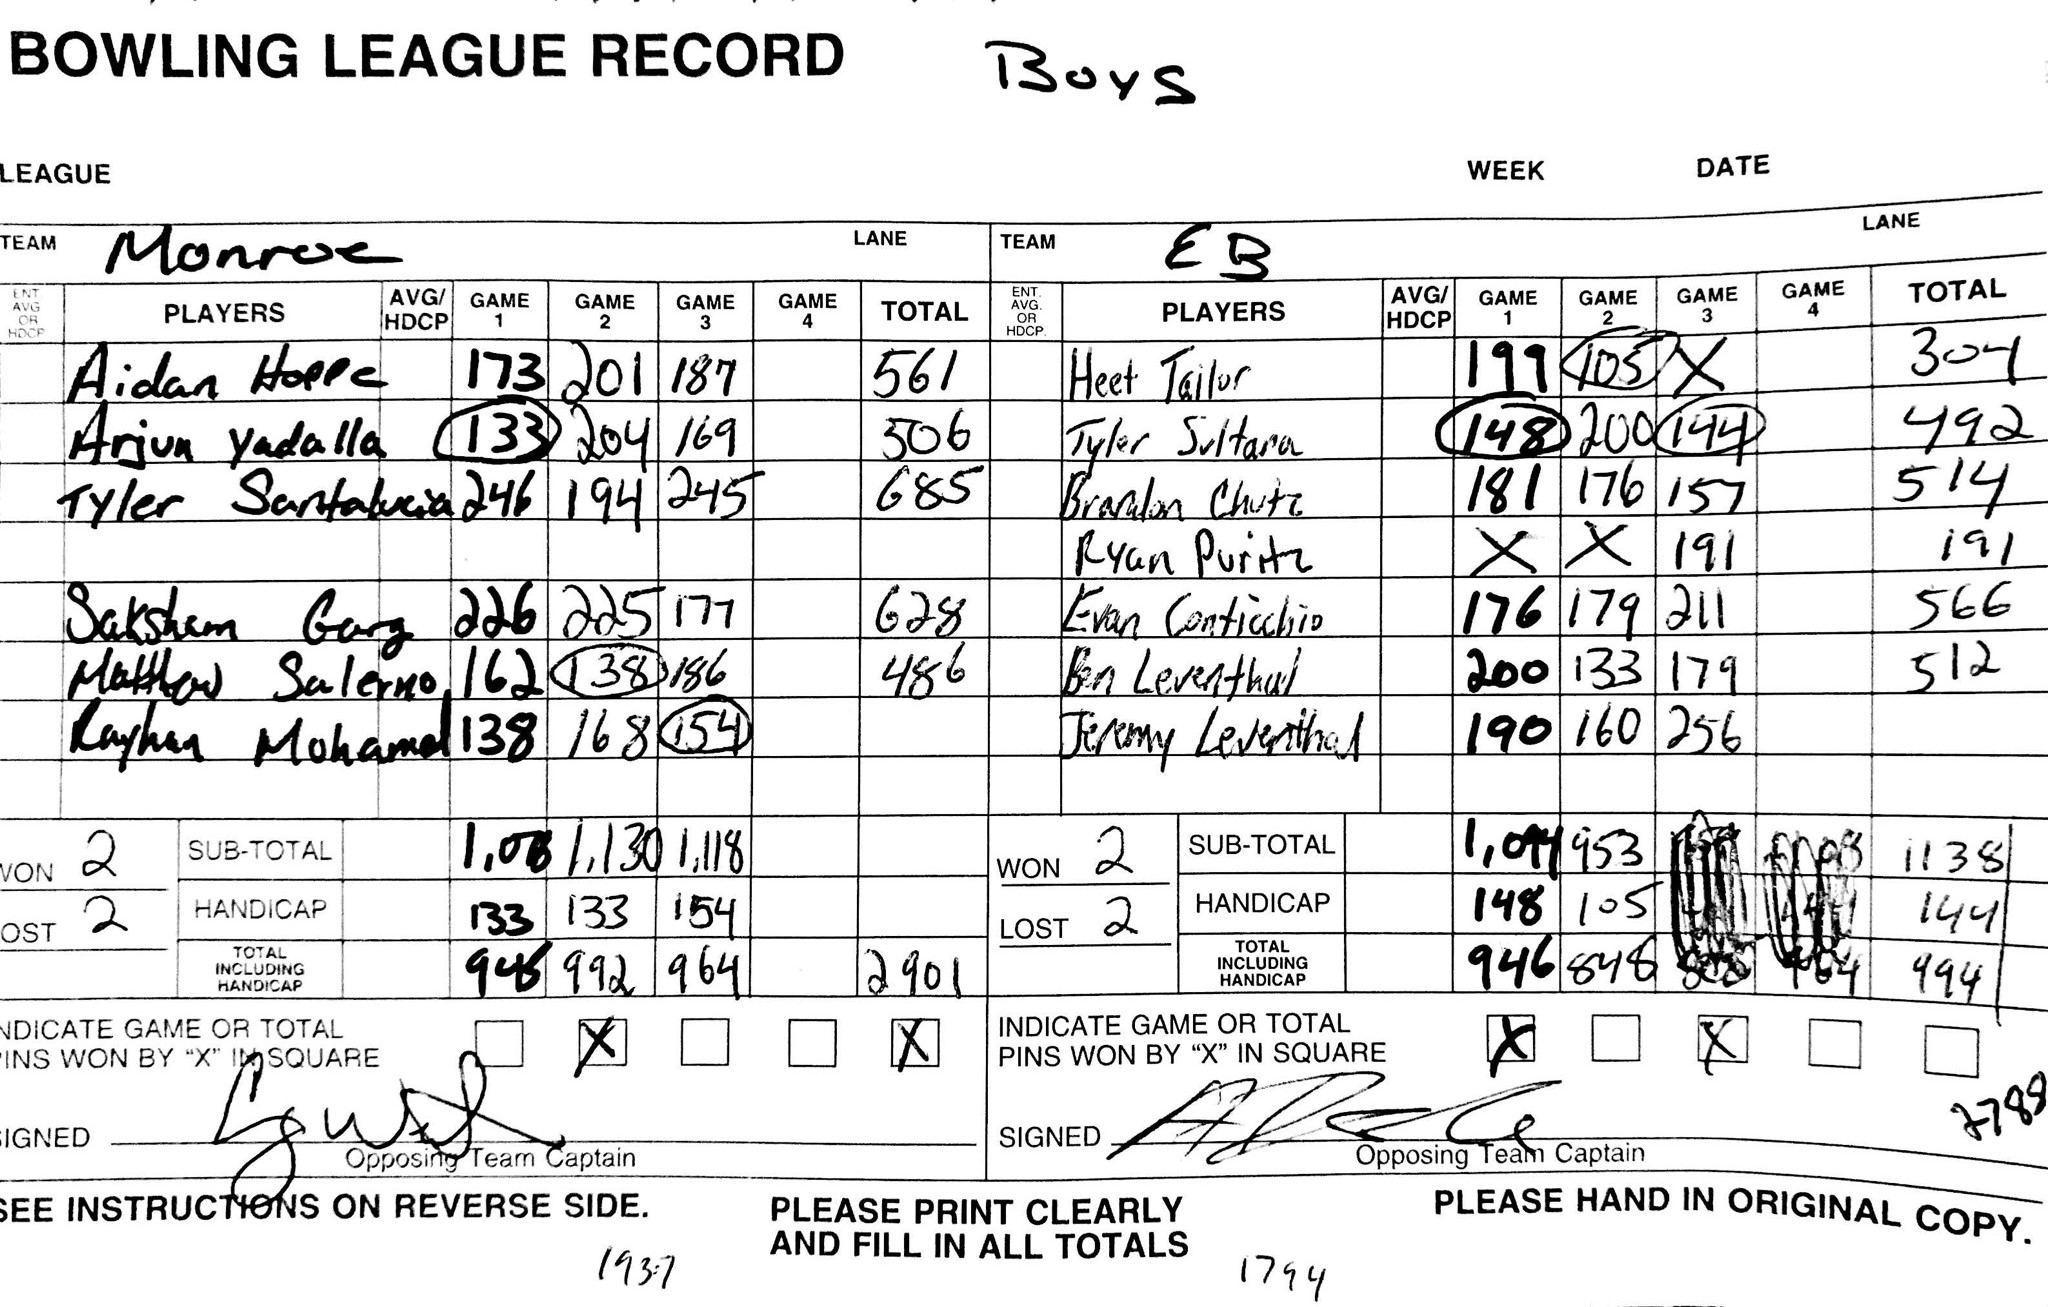 BOWLING LEAGUE RECORD Boys
LEAGUE WEEK DATE
TEAM Monroe LANE TEAM EB LANE
ENT AVG OR HDCP. PLAYERS AVG/ HDCP GAME 1 GAME 2 GAME 3 GAME 4 TOTAL ENT. AVG. OR HDCP. PLAYERS AVG/ HDCP GAME 1 GAME 2 GAME 3 GAME 4 TOTAL
Aidan Hoppe 173 201 187 561 Heet Tailor 199 105 X 304
Arjun Yadalla 133 204 169 506 Tyler Sultana 148 200 144 492
Tyler Santalucia 246 194 245 685 Brandon Chutz 181 176 157 514
Ryan Puritz X X 191 191
Saksham Garg 226 225 177 628 Evan Conticchio 176 179 211 566
Matthew Salerno 162 138 186 486 Ben Leventhal 200 133 179 512
Rayhan Mohamed 138 168 154 Jeremy Leventhal 190 160 256
WON 2 SUB-TOTAL 1,130 1,118 WON 2 SUB-TOTAL 1,094 953 1138
LOST 2 HANDICAP 133 133 154 LOST 2 HANDICAP 148 105 144
TOTAL INCLUDING HANDICAP 945 992 964 2901 TOTAL INCLUDING HANDICAP 946 848 994
INDICATE GAME OR TOTAL PINS WON BY "X" IN SQUARE X X INDICATE GAME OR TOTAL PINS WON BY "X" IN SQUARE X X
2788
SIGNED SIGNED
Opposing Team Captain Opposing Team Captain
SEE INSTRUCTIONS ON REVERSE SIDE. PLEASE PRINT CLEARLY AND FILL IN ALL TOTALS PLEASE HAND IN ORIGINAL COPY.
1937 1794